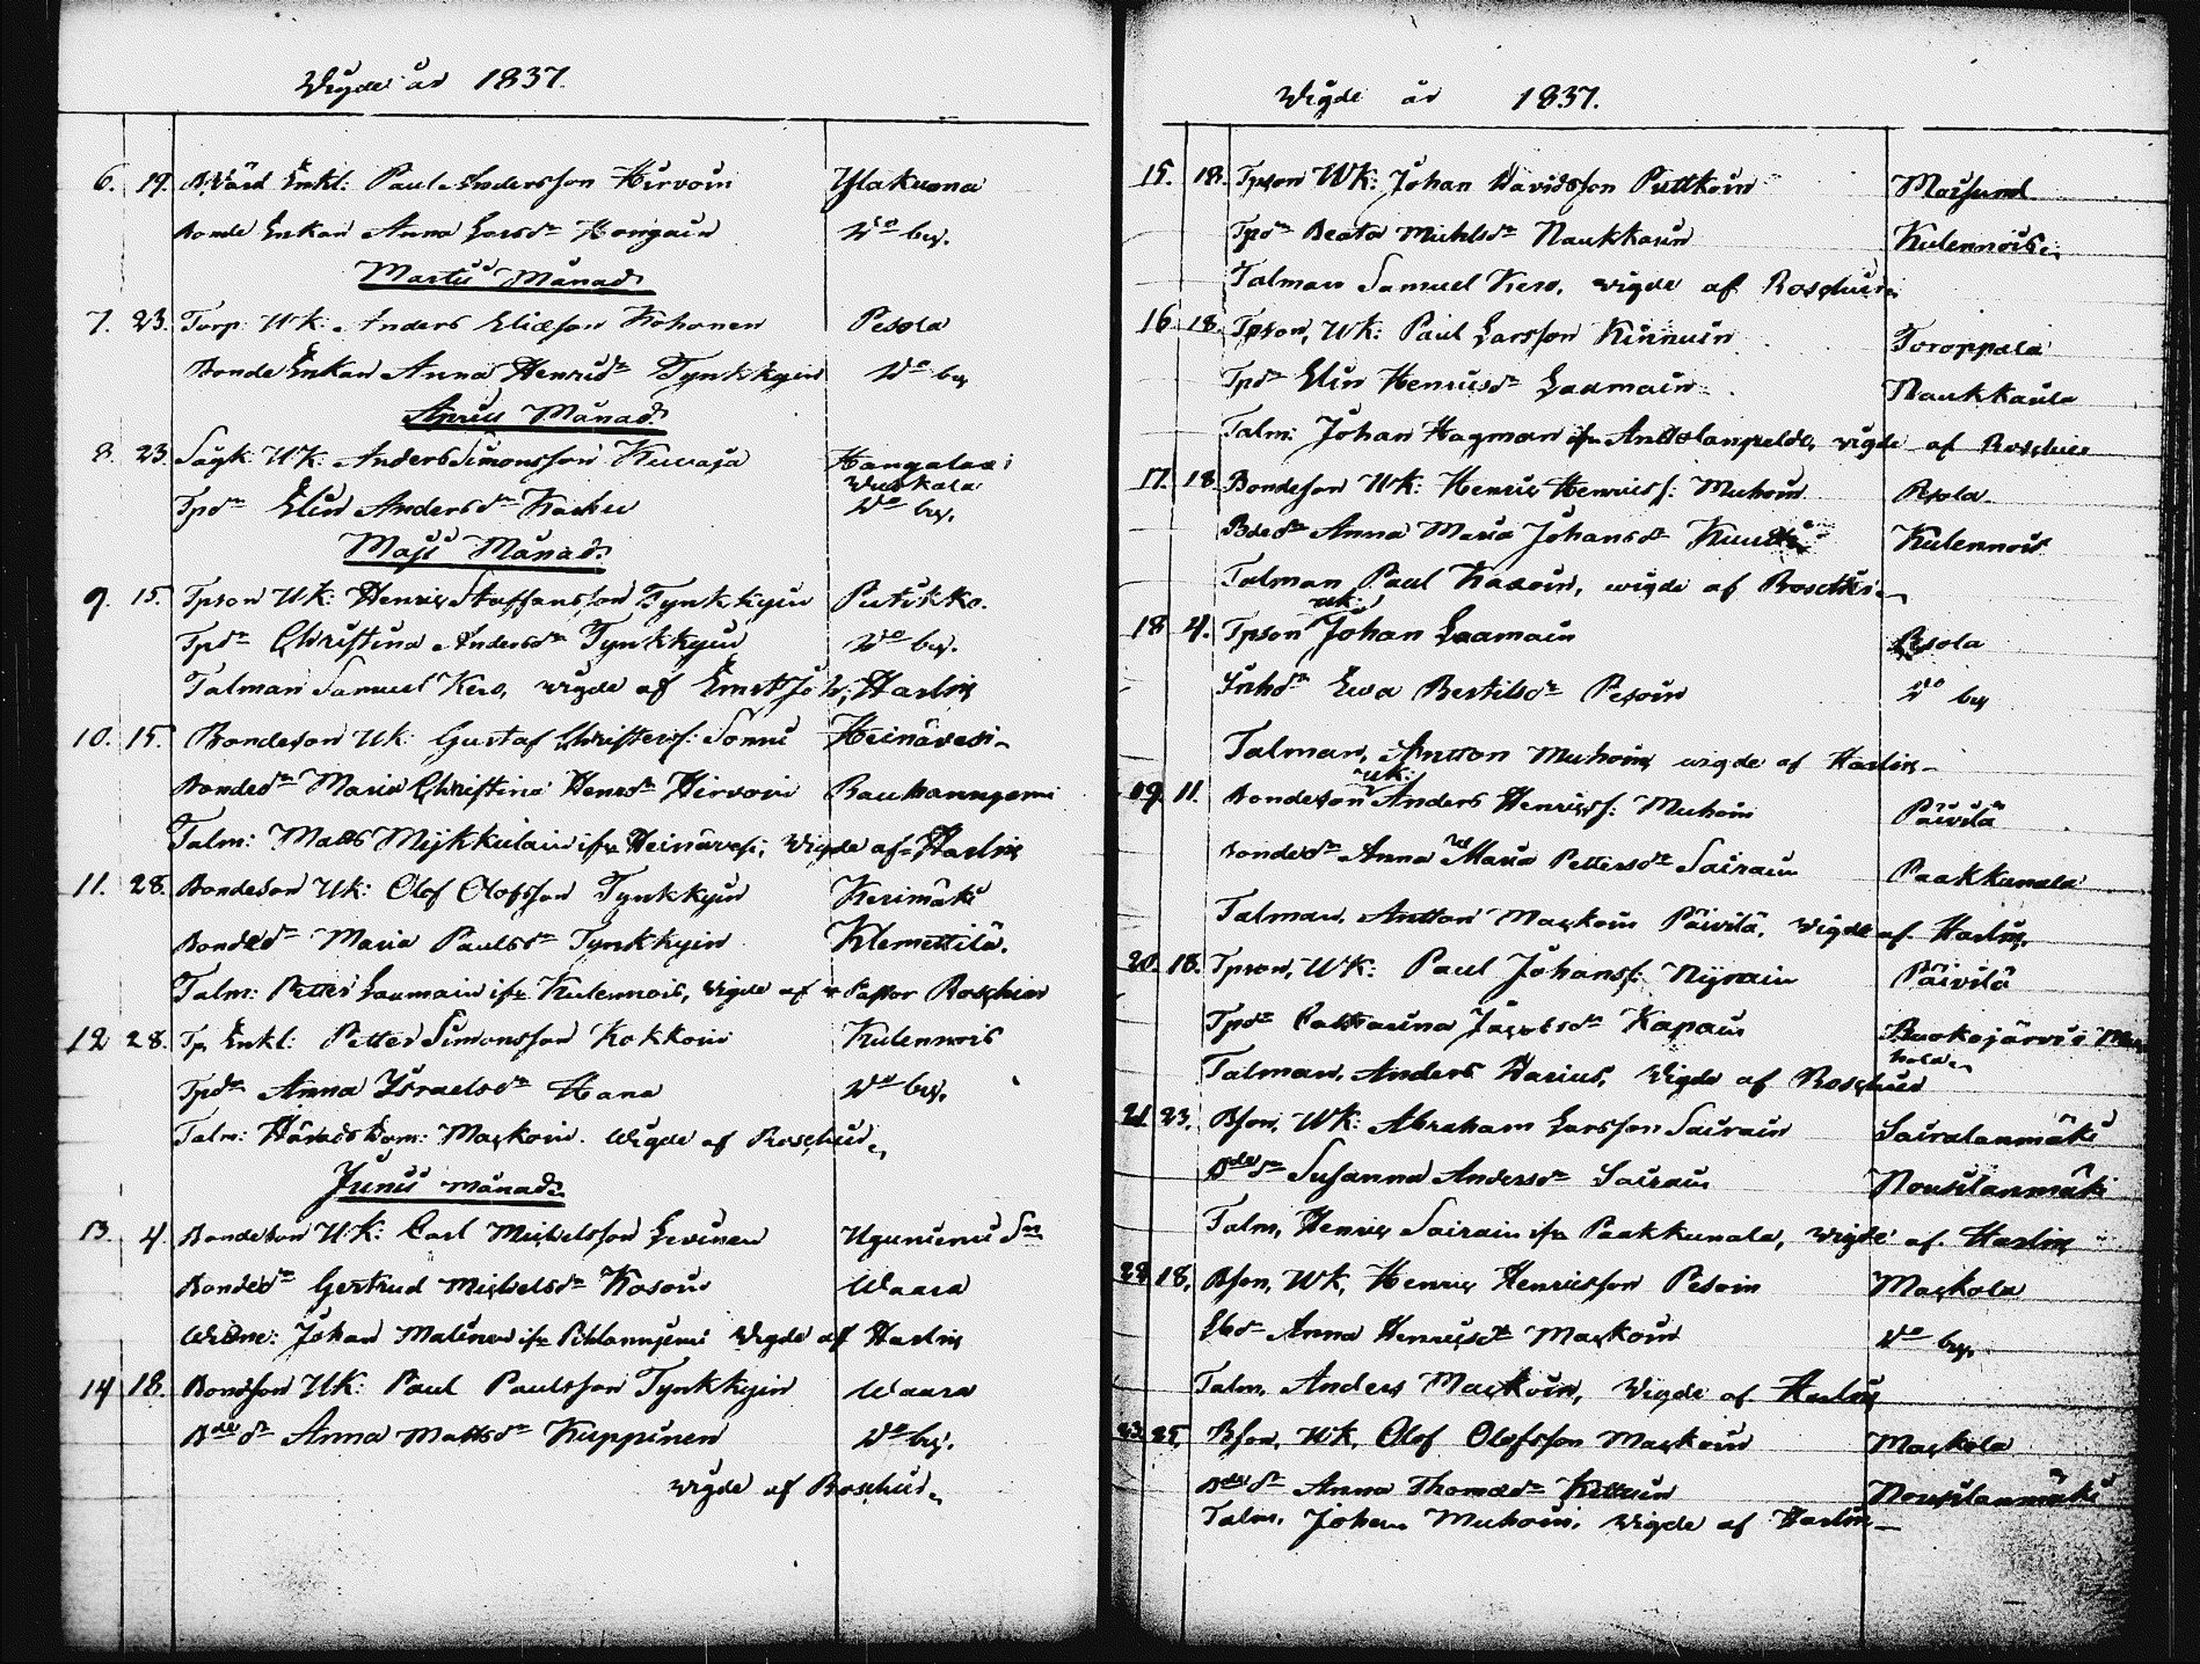 Wigde år 1837.
6. 19. B.Värd Enkl: Paul Andersson Hirvoin Ylakuona
Bonde Enkan Anna Larsdr Hongain Do by.
Martii Månad.
7. 23. Torp. UK. Anders Eliæson Kohonen Pesola
Bonde Enkan Anna Henricdr Tynkkyin Do by
Aprill Månad.
8. 23. UK: Anders Simonsson Kuvaja Hangalax;
Wuokala
Tpdr Elin Andersdr Karhu Do by.
Maji Månad.
9. 15. Tpson UK: Henric Staffansson Tynkkyin Putikko.
Tpdr Christina Andersdr Tynkkyin Do by.
Talman Samuel Kero, wigde af Ernst Joh: Harlin
10. 15. Bondeson UK: Gustaf Christersf: Sonni Heinävesi
Bondedr Maria Christina Henrdr Hirvoin Rauhanniemi
Talm: Matts Mykkulain ifr Heinävesi, Wigde af Harlin
11. 28. Bondeson UK: Olof Olofsson Tynkkyin Kerimäki
Bondedr Maria Paulsdr Tynkkyin Klemettilä.
Talm: Petter Laumain ifr Kulennois, Wigde af Pastor Roschier
12 28. Tp Enkl: Petter Simonsson Kokkoin Kulennois
Tpdr Anna Israelsdr Hana Do by.
Talm: Härads Dom: Maskoin. Wigde af Roschier
Junii Månad.
13. 4. Bondeson UK: Carl Michelsson Levinen Uguniemi Sn
Bondedr Gertrud Michelsdr Kosoin Waara
Johan Malinen ifr Pihlanniemi Wigde af Harlin
14 18. Bondson UK: Paul Paulsson Tynkkyin Waara
Bdedr Anna Mattsdr Kuppinen Do by.
wigde af Roschier
Wigde år 1837.
15. 18. Tpson UK: Johan Davidsson Puttkoin Moisund
Tpdr Beata Michlsdr Naukkarin Kulennois
Talman Samuel Kero, wigde af Roschier
16 18. Tpson, UK: Paul Larsson Kinnuin Toroppala
Tpdr Elin Henricsdr Laamain Naukkaula
Talm: Johan Hagman ifr wigde af Roschier
17. 18. Bondeson UK: Henric Henricsf: Muhoin Pesola
Bdedr Anna Maria Johansdr Kulennois
Talman Paul Kasoin, wigde af Roschier
UK:
18 4. Tpson Johan Laamain Pesola
Inhdr Ewa Bertilsdr Pesoin Do by
Talman, Antton Muhoin, wigde af Harlin
UK:
19. 11. Bondeson Anders Henricsf: Muhoin Päivilä
Bondedr Anna Maria Pettersdr Sairain Paakkunala
Talman, Antton Maskoin Päivilä, Wigde af Harlin
20. 18. Tpson, UK: Paul Johansf: Nyrain Päivilä
Tpdr Catharina Jacobsdr Kapain Ruokojärvi i
Talman, Anders Harius, Wigde af Roschier
21. 23. Bson, UK: Abraham Larsson Sairain Sairalanmäki
Bdedr Susanna Andersdr Sairain Nousilanmäki
Talm, Henric Sairain ifr Paakkunala, wigde af Harlin
22 18. Bson, UK, Henric Henricsson Pesoin Maskola
Anna Henricsdr Maskoin Do by.
Talm, Anders Maskoin, Wigde af Harlin
23 25. Bson, UK, Olof Olofsson Maskoin Maskola
Bdedr Anna Thomædr Kettuin Nousilanmäki
Talm, Johan Muhoin, Wigde af Harlin